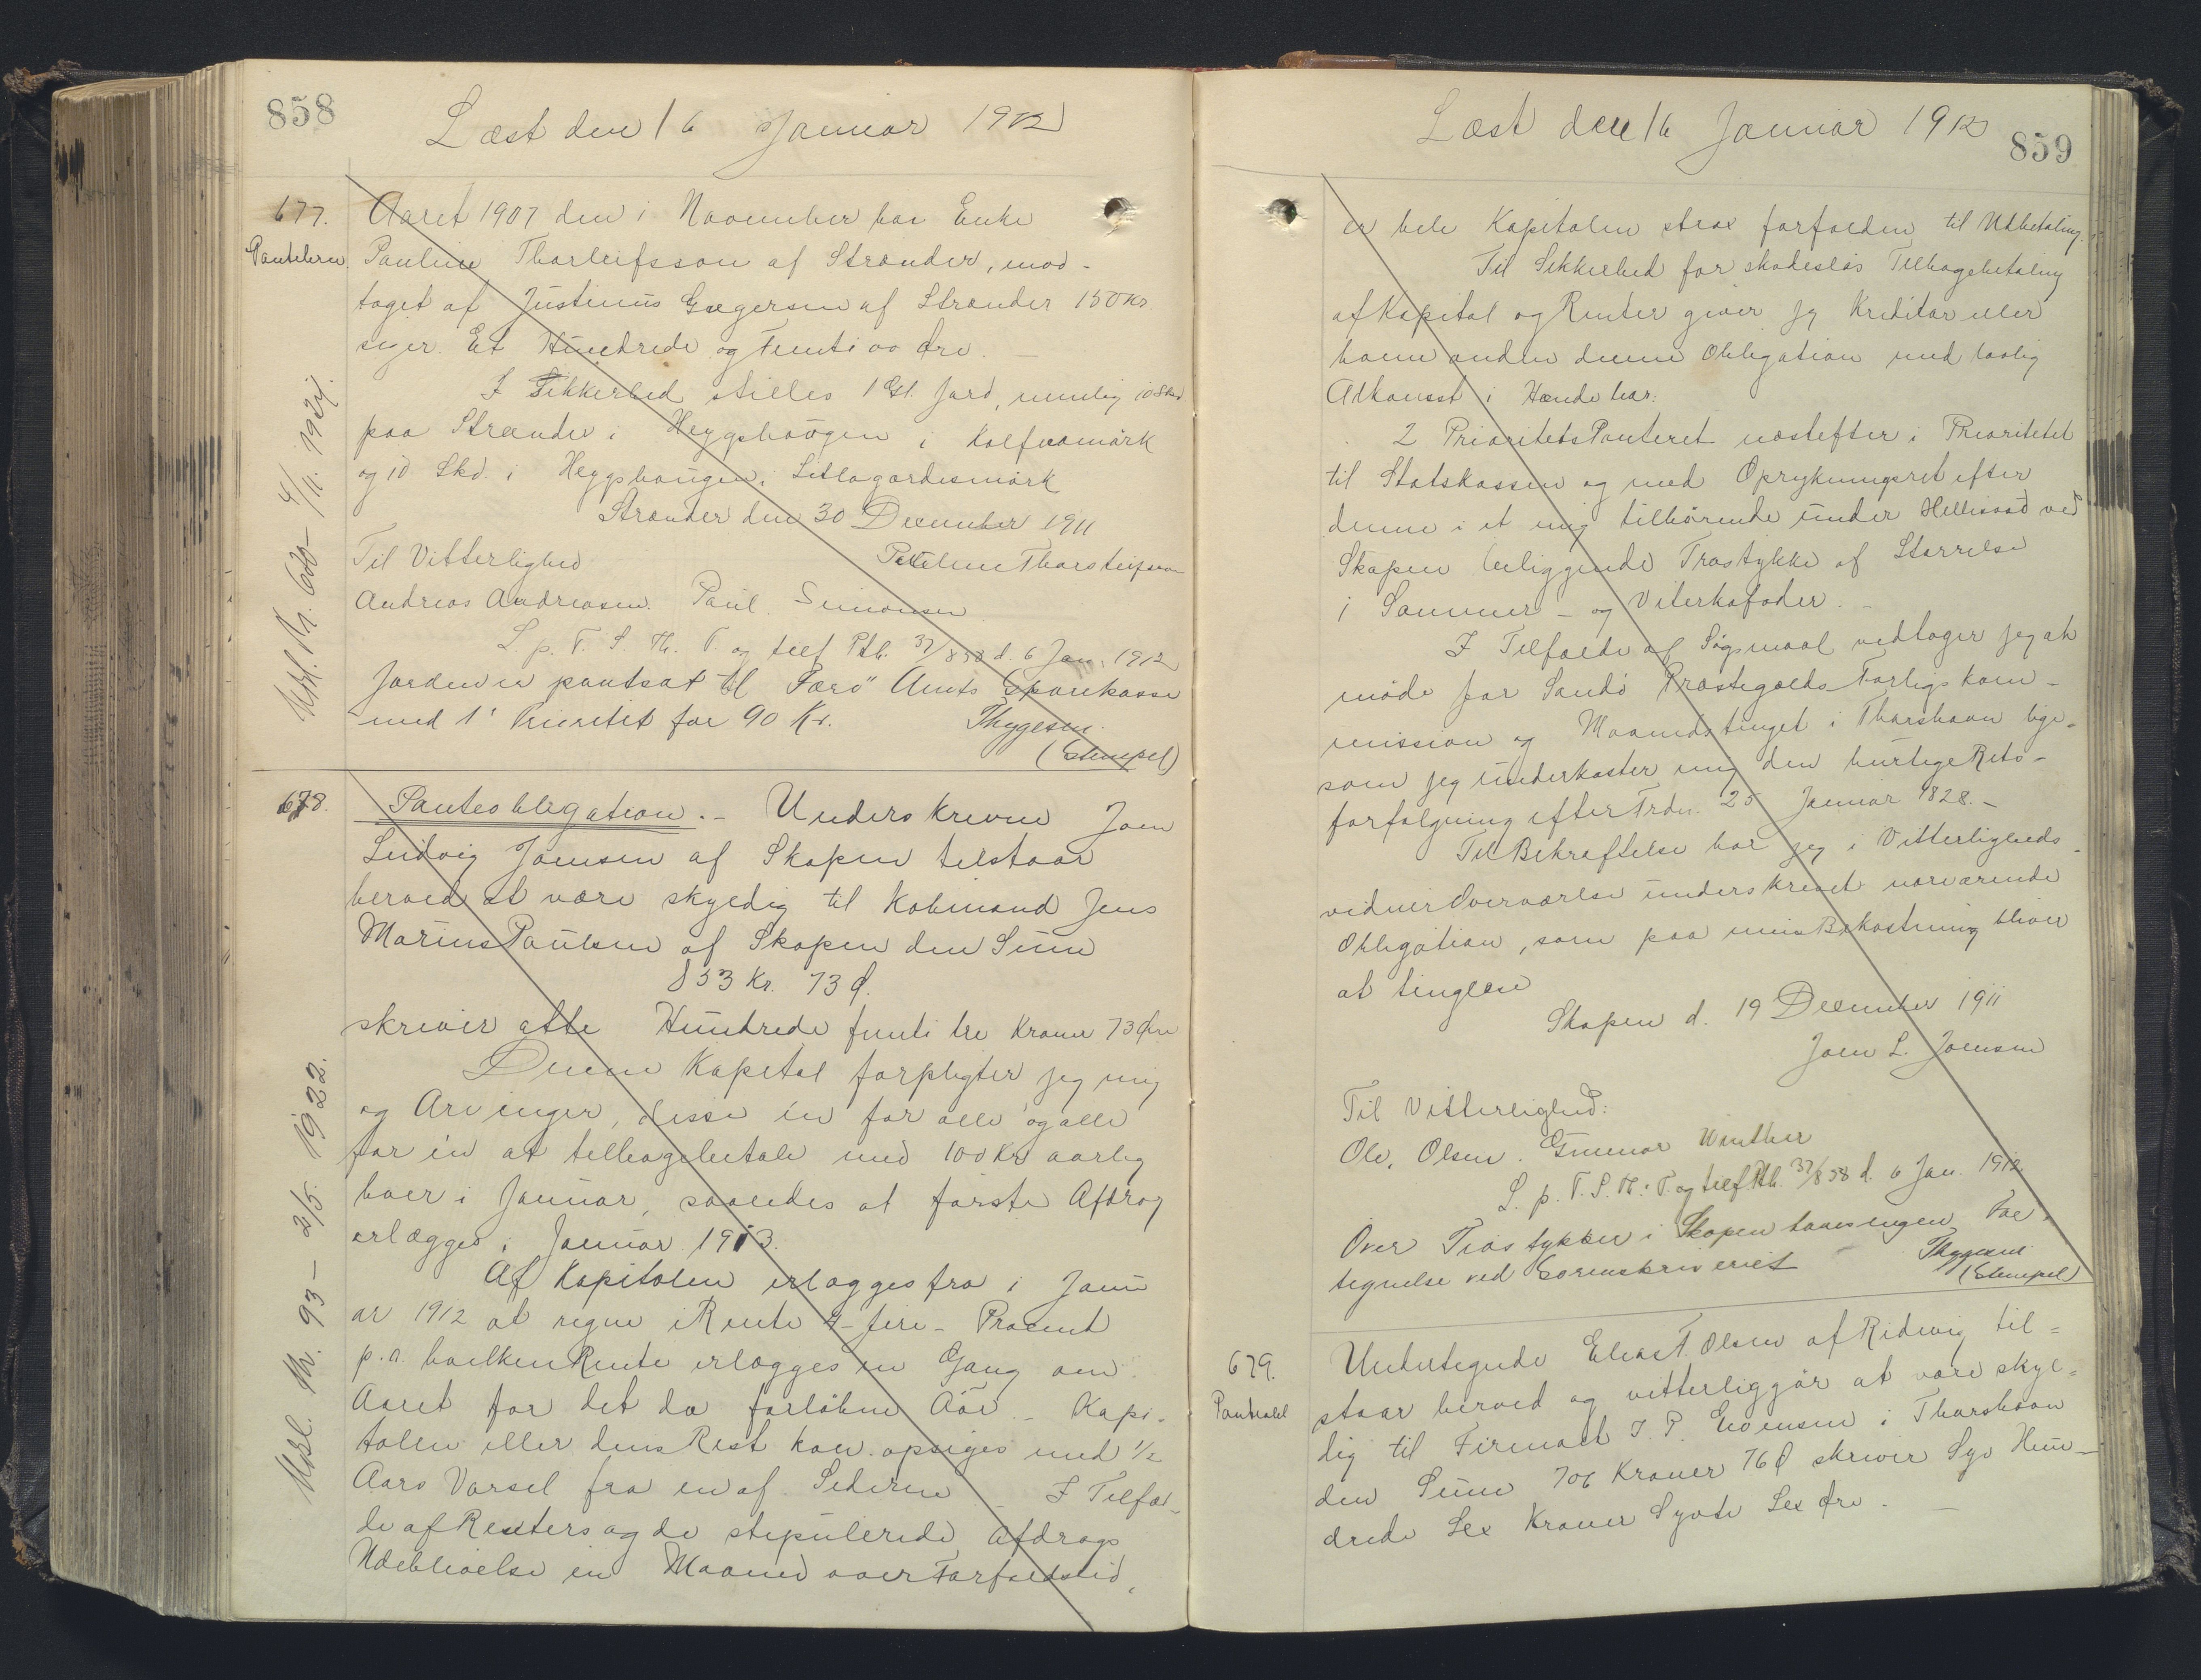 858
Læst den 16 Januar 1912
677.
Pantebrev.
Aaret 1907 den 1 November har Enke
Pauline Thorleifsson af Strænder, mod-
taget af Justinus Grægersen af Strænder 150 Kr.
siger Et Hundrede og Femti oo Øre.
I Sikkerhed stilles 1 Gl. Jord, nemlig 10 Skd
paa Strænder i Heygshaugen i Kolfuamørk
og 10 Skd. i Heygshaugen i Litlagardsmørk
Strænder den 30 December 1911
Til Vitterlighed
Andreas Andreasen. Paul Simonsen
L. p. T. S. Th. P. og tilf Ptb. 37/858 d. 6 Jan. 1912
Jorden er pantsat til Færø Amts Sparekasse
med 1' Prioritet for 90 Kr. Thygesen.
(Stempel)
Udsl. Th. 600 - 4/11. 192
678.
Panteobligation. - Underskrevne Joen
Ludvig Joensen af Skopen tilstaar
herved at være skyldig til Købmand Jens
Marius Paulsen af Skopen den Sum
853 Kr. 73 Ø.
skriver otte Hundrede femti tre Kroner 73 Øre
Denne Kapital forpligter jeg mig
og Arvinger, disse én for alle og alle
for én at tilbagebetale med 100 Kr aarlig
hver i Januar, saaledes at første Afdrag
erlægges i Januar 1913.
Af Kapitalen erlægges fra 1 Janu
ar 1912 at regne i Rente 4 - fire - Procent
p.a. hvilken Rente erlægges en Gang om
Aaret for det da forløbne Aar. - Kapi-
talen eller dens Rest kan opsiges med 1/2
Aars Varsel fra en af Siderne - I Tilfæl-
de af Renters og de stipulerede Afdrags
Udeblivelse en Maaned over Forfaldstid,
Udsl. Th. 93 - 2/5. 1922.
Læst den 16 Januar 1912
859
er hele Kapitalen strax forfalden til Udbetaling.
Til Sikkerhed for skadesløs Tilbagebetaling
af Kapital og Renter giver jeg Kreditor eller
hvem anden denne Obligation med lovlig
Adkomst i Hænde har:
2 Prioritets Panteret næstefter i Prioritetet
til Statskassen og med Oprykningsret efter
denne i et mig tilhørende under Hellisaad ved
Skopen beliggende Trøstykke af Størrelse
1 Sommer- og Viterkofoder. -
I Tilfælde af Søgsmaal vedtager jeg at
møde for Sandø Præstegælds Forligskom-
mission og Maanedstinget i Thorshavn lige-
som jeg underkaster mig den hurtige Rets-
forfølgning efter Frdn. 25 Januar 1828. -
Til Bekræftelse har jeg i Vitterligheds-
vidners Overværelse underskrevet nærværende
Obligation, som paa min Bekostning bliver
at tinglæse
Skopen d. 19 December 1911
Joen L. Joensen
Til Vitterlighed:
Ole, Olsen. Gunnar Winther
L. p. T. S. Th. P. og tilf Ptb. 37/858 d. 6 Jan. 1912.
Over Trøstykker i Skopen haves ingen For-
tegnelse ved Sorenskriveriet Thygesen
(Stempel)
679.
Undertegnede Elias T. Olsen af Ridevig til=
staar herved og vitterliggør at være skyl=
dig til Firmaet J. P. Evensen i Thorshavn
den Sum 706 Kroner 76 Ø skriver Syv Hun-
drede Sex Kroner Syvti Sex Øre. -